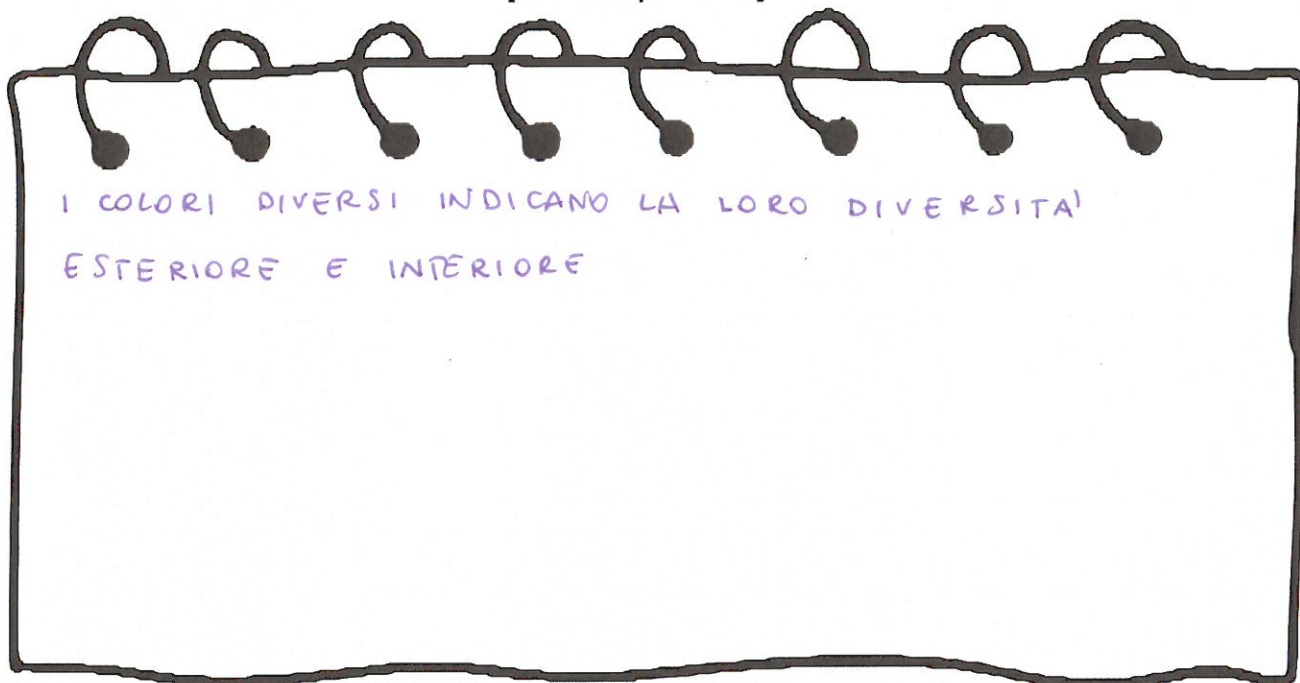 I COLORI DIVERSI INDICANO LA LORO DIVERSITA'
ESTERIORE E INTERIORE